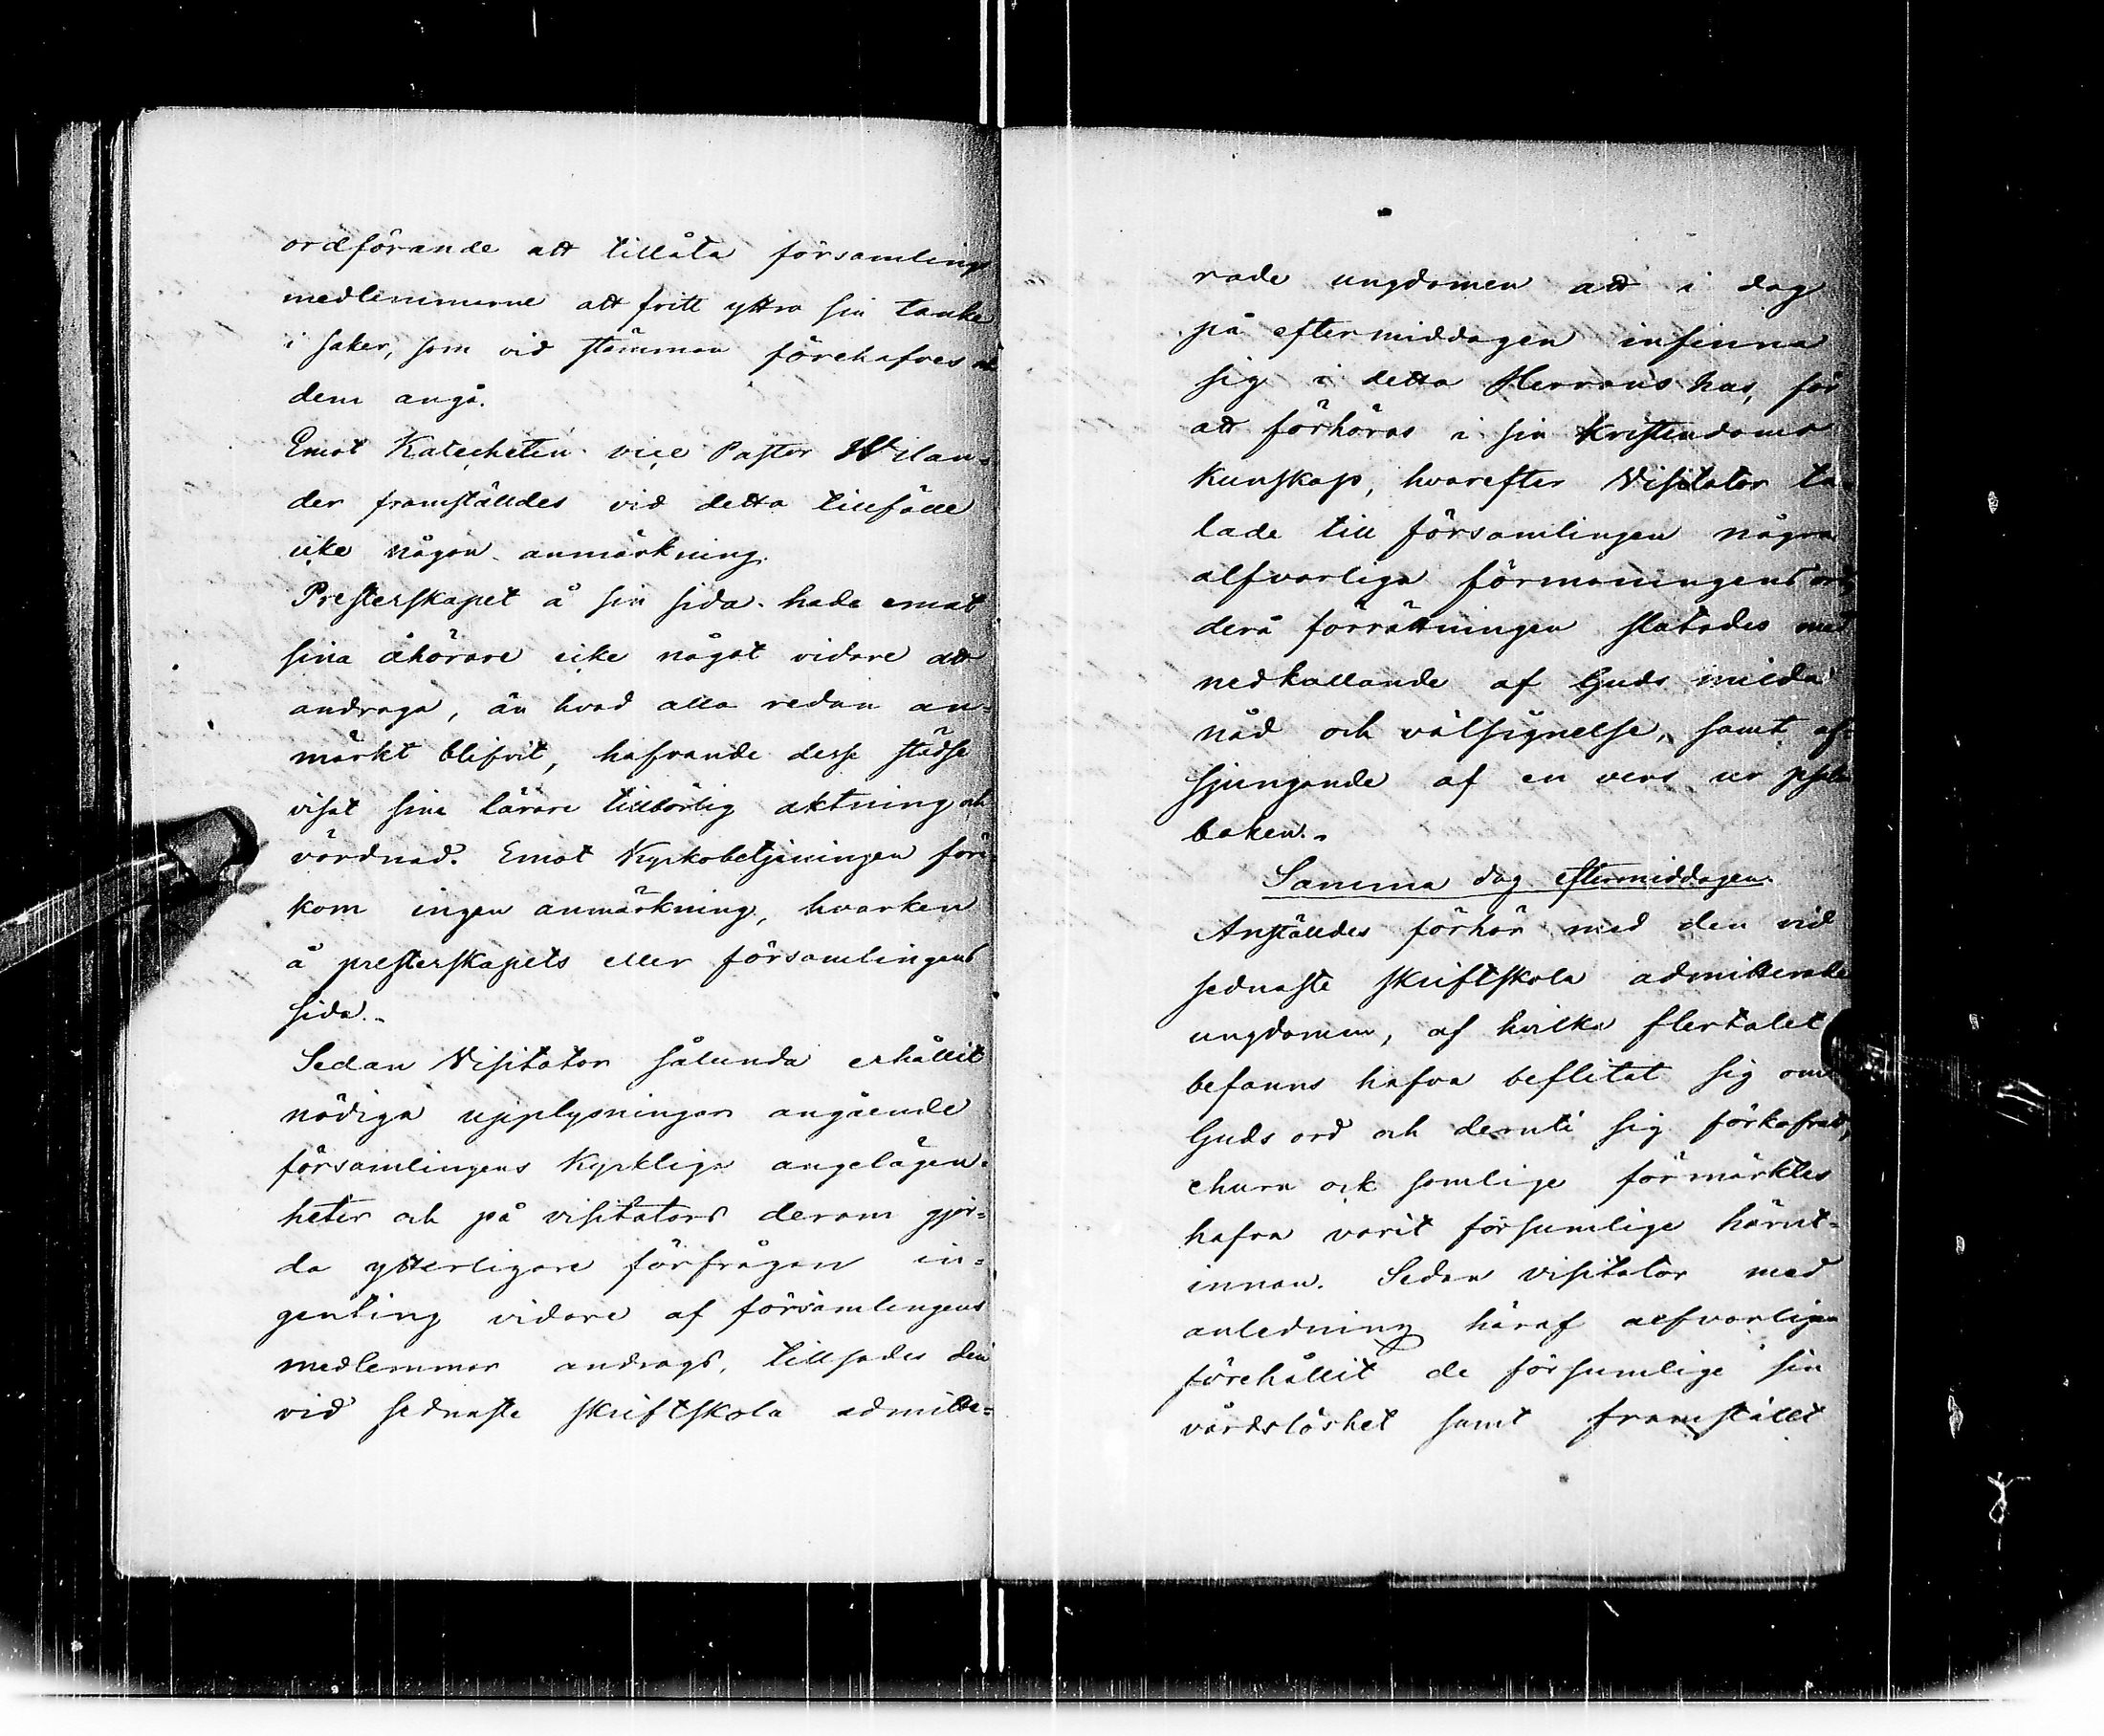 ordförande att tillåta församlings
medlemmarne att fritt yttra sin tanke
i saker, som vid stämman förehafves och
dem angå.
Emot Katecheten vice Pastor Wilan=
der framställdes vid detta tillfälle
icke någon anmärkning.
Presterskapet å sin sida hade emot
sina åhörare icke något vidare att
andraga, än hvad alla redan an=
märkt blifvit, hafvande desse städse
visat sina lärare tillbörlig aktning och
vördnad. Emot Kyrkobetjeningen före=
kom ingen anmärkning, hvarken
å presterskapets eller församlingens
sida.
Sedan Visitator sålunda erhållit
nödiga upplysningar angående
församlingens Kyrkliga angelägen=
heter och på visitators derom gjor=
da ytterligare förfrågan in=
genting vidare af församlingens
medlemmar andrags, tillsades den
vid sednaste skriftskola admitte=
rade ungdomen att i dag
på eftermiddagen infinna
sig i detta Herrans hus, för
att förhöras i sin Kristendoms
kunskap, hvarefter Visitator ta=
lade till församlingen några
alfvarliga förmaningens ord,
derå förrättningen slutades med
nedkallande af Guds milda
nåd och välsignelse, samt af=
sjungande af en vers ur psalm
boken.
Samma dag eftermiddagen.
Anställdes förhör med den vid
sednaste skriftskola admitterade
ungdomen, af hvilka flertalet
befanns hafva beflitat sig om
Guds ord och deruti sig förkofrat,
ehuru ock somlige förmärktes
hafva varit försumlige härut=
innan. Sedan visitator med
anledning häraf alfvarligen
förehållit de försumlige sin
vårdslöshet samt framställt